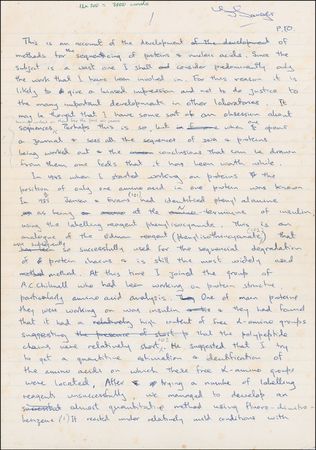 12 x 200 = 2400 words
F Sanger
P.T.O.
This is an account of the development of the development of
methods for the sequencing of proteins & nucleic acids. Since the
subject is a vast one I shall consider predominantly only
the work that I have been involved in. For this reason it is
likely to give a biased impression and not to do justice to
the many important developments in other laboratories. It
may be thought that I have some sort of an obsession about
sequences. Perhaps this is so, but when I open
a journal & sees all the sequences of DNA & proteins
being worked out & the conclusions that can be drawn
from them one feels that it has been worth while.
In 1943 when I started working on proteins the
position of only one amino acid in one protein was known
In 1935 Jensen & Evans (101) had identified phenylalanine
as being at the terminus of insulin,
using the labelling reagent phenyl isocyanate. This is an
analogue of the Edman reagent (phenyl isothiocyanate) that
was subsequently so successfully used for the sequential degradation
of protein chains & is still the most widely used
method. At this time I joined the group of
A.C. Chibnall who had been working on protein structure
particularly amino acid analysis. One of main proteins
they were working on was insulin & they had found
that it had a relatively high content of free α-amino groups
suggesting the presence of short that the polypeptide
chains were relatively short. He suggested that I try
to get a quantitative estimation & identification of
the amino acids on which these free α-amino groups
were located. After trying a number of labelling
reagents unsuccessfully, we managed to develop an
almost quantitative method using fluoro-dinitro-
benzene (1) It reacted under relatively mild conditions with